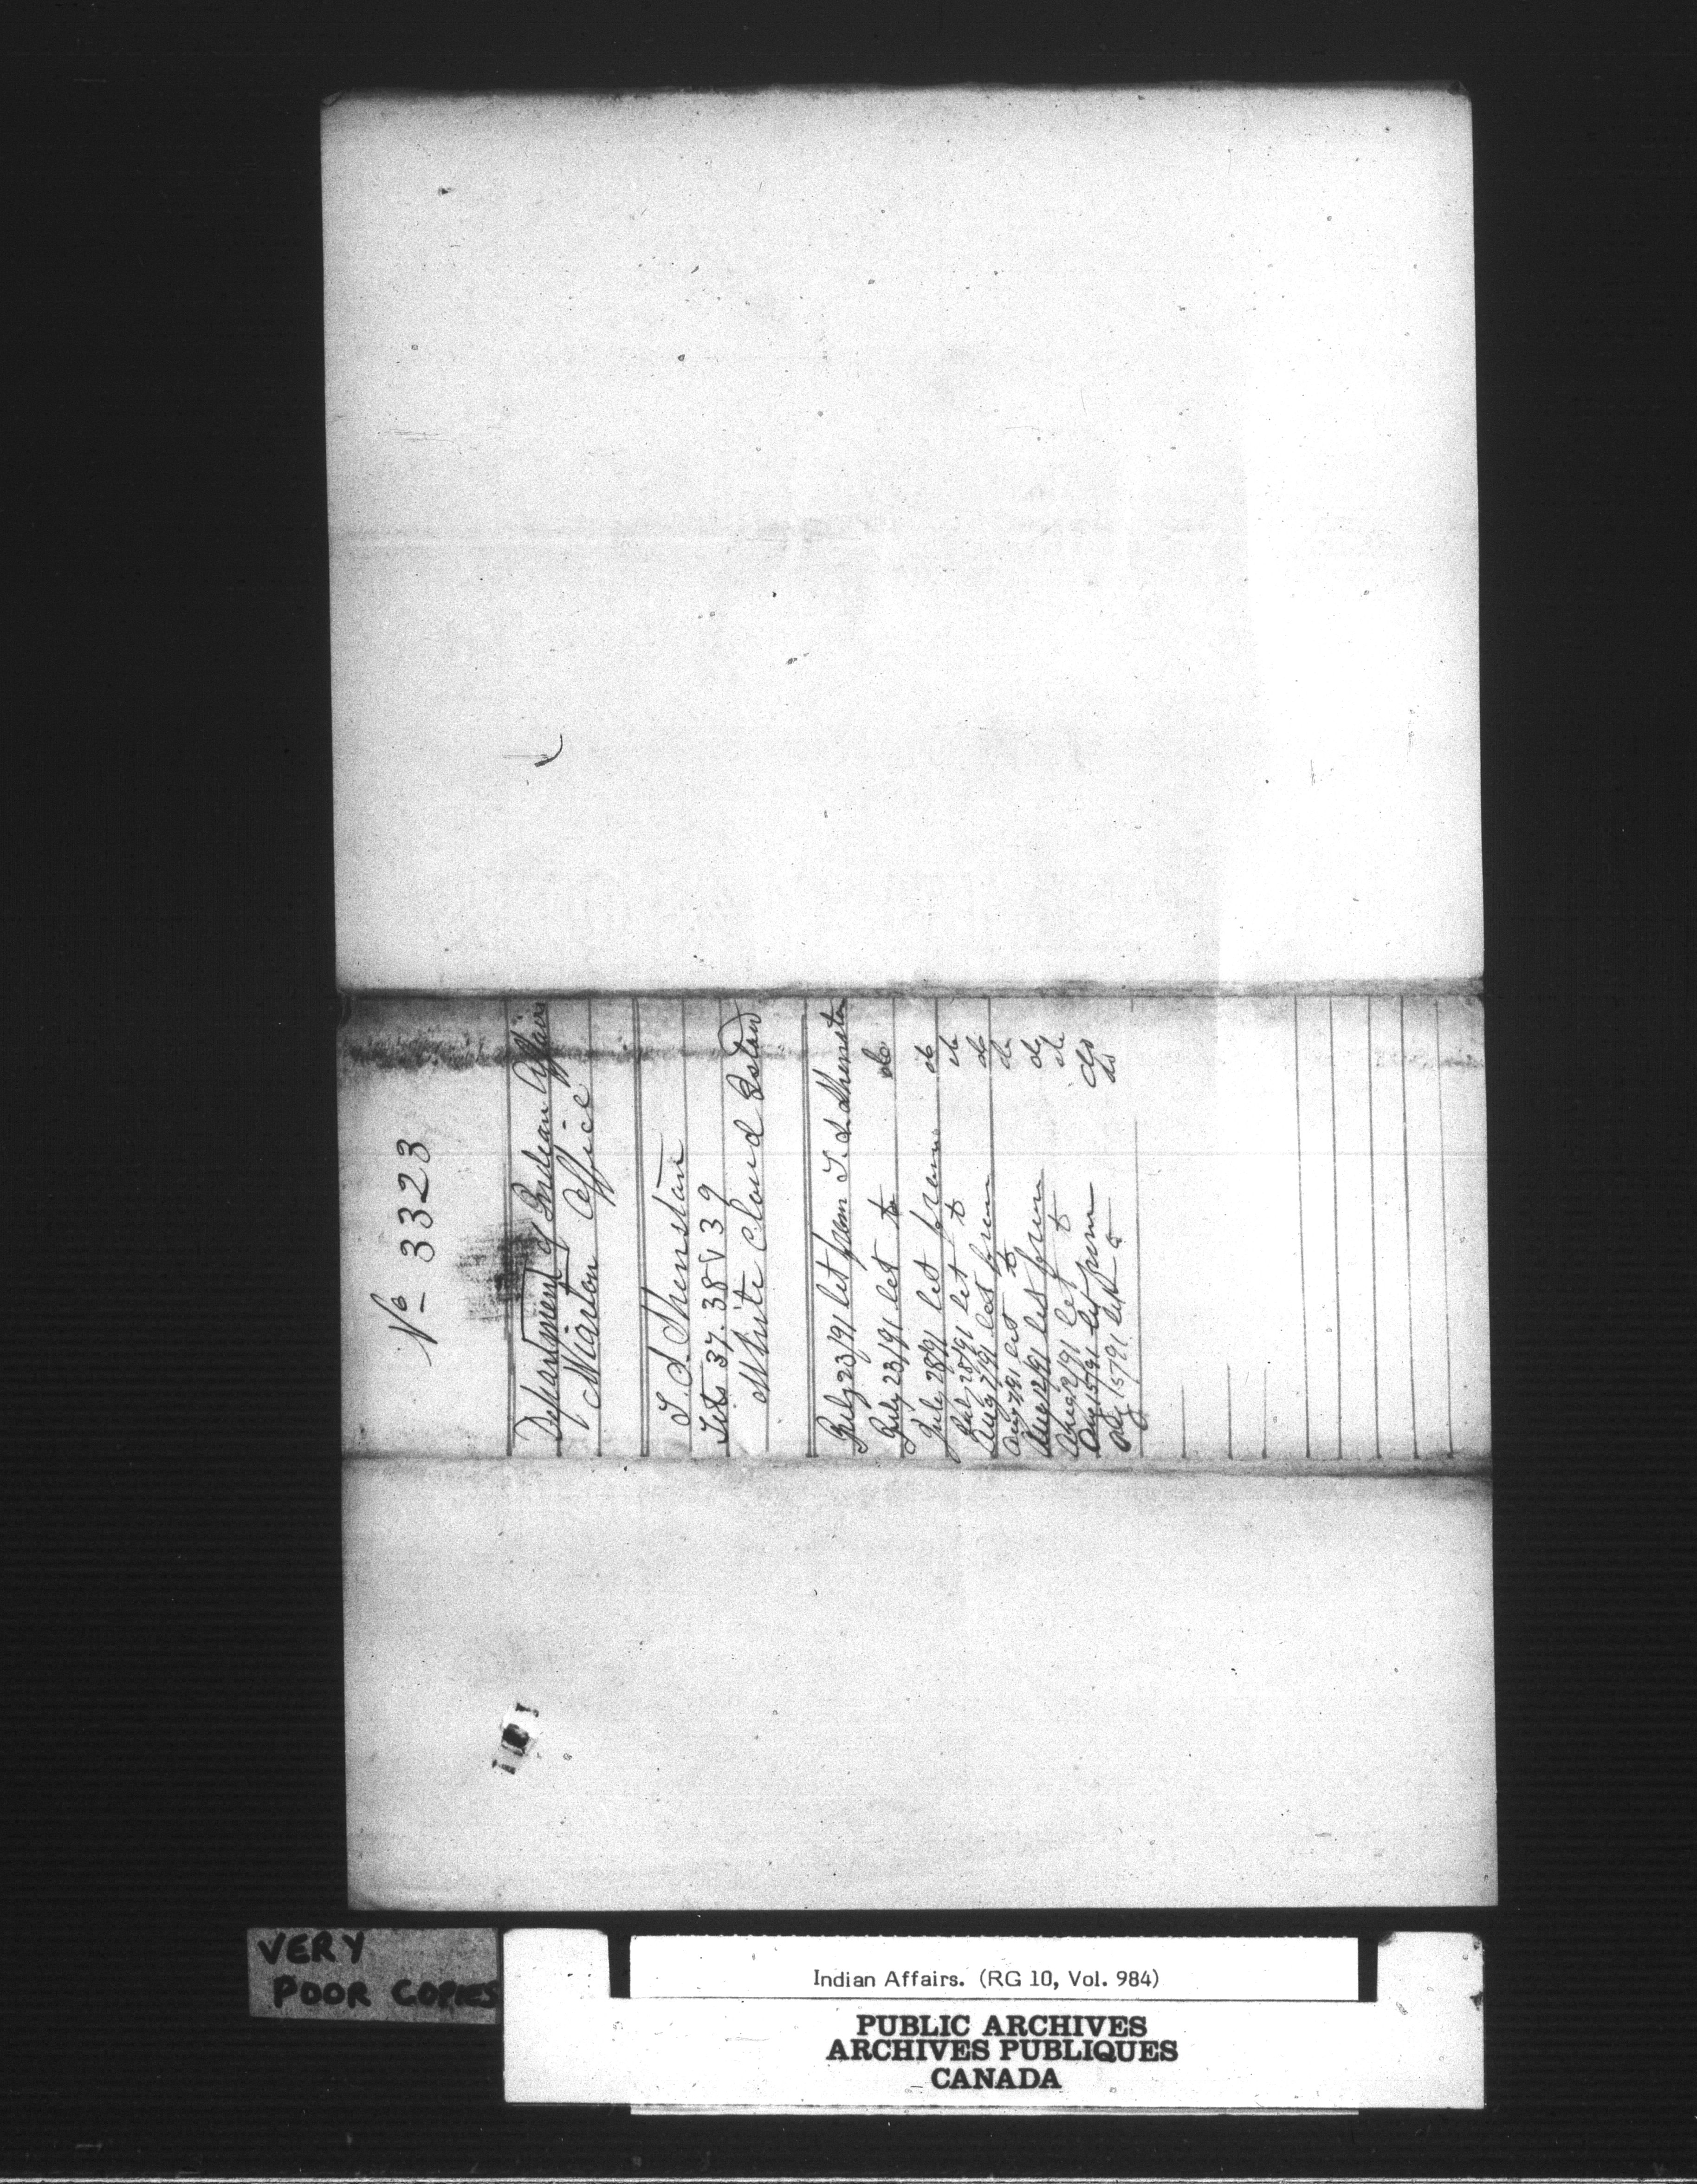 No 3323
Department of Indian Affairs
Wiarton Office
T. S. Shenstan
Lots 37. 38 & 39
White Cloud Island
July 23/91 let from T. S. Shenston
July 23/91 let to do
July 28/91 let from do
July 28/91 let to do
Aug 7/91 let from do
Aug 7/91 let to do
Aug 12/91 let from do
Aug 12/91 let to do
Aug 15/91 let from do
Aug 15/91 let to do
VERY
POOR COPIES
Indian Affairs. (RG 10, Vol. 984)
PUBLIC ARCHIVES
ARCHIVES PUBLIQUES
CANADA